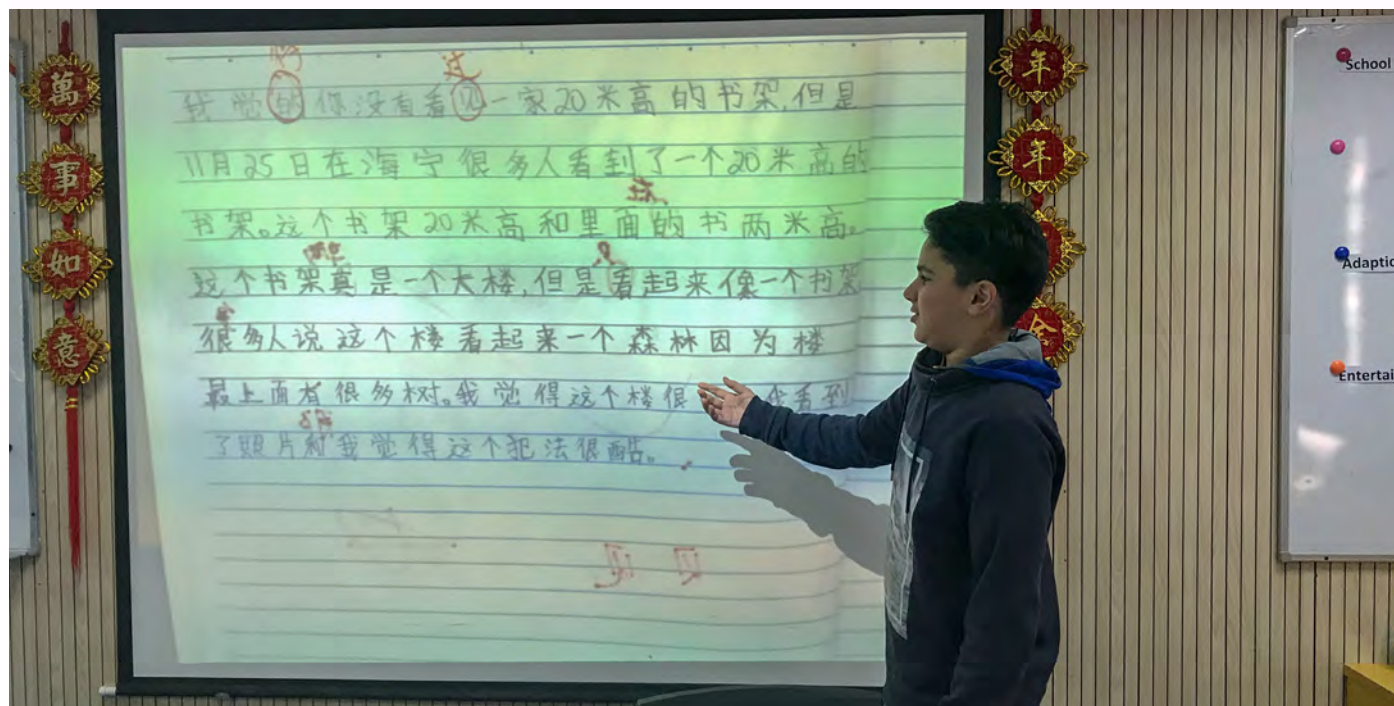 萬事如意
得
过
我觉的你没有看见一家20米高的书架,但是
11月25日在海宁很多人看到了一个20米高的
书架。这个书架20米高和里面的书两米高。
这个书架真是一个大楼,但是看起来像一个书架
很多人说这个楼看起来一个森林因为楼
最上面有很多树。我觉得这个楼很
看到
了照片和我觉得这个
法很酷。
年年
School
Adaptio
Entertai